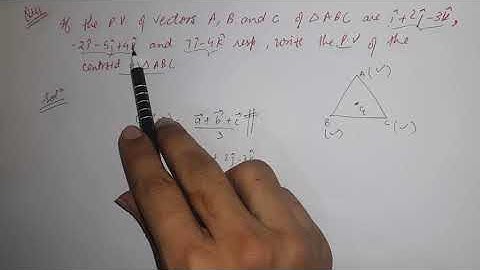 If the P.V of vectors A, B and C of ΔABC are î+2ĵ-3k̂,
-2î-5ĵ+4k̂ and 7î-4k̂ resp, write the P.V of the
centroid ΔABC
A(✓)
Solⁿ
a⃗+b⃗+c⃗
3
G
B
C(✓)
(✓)